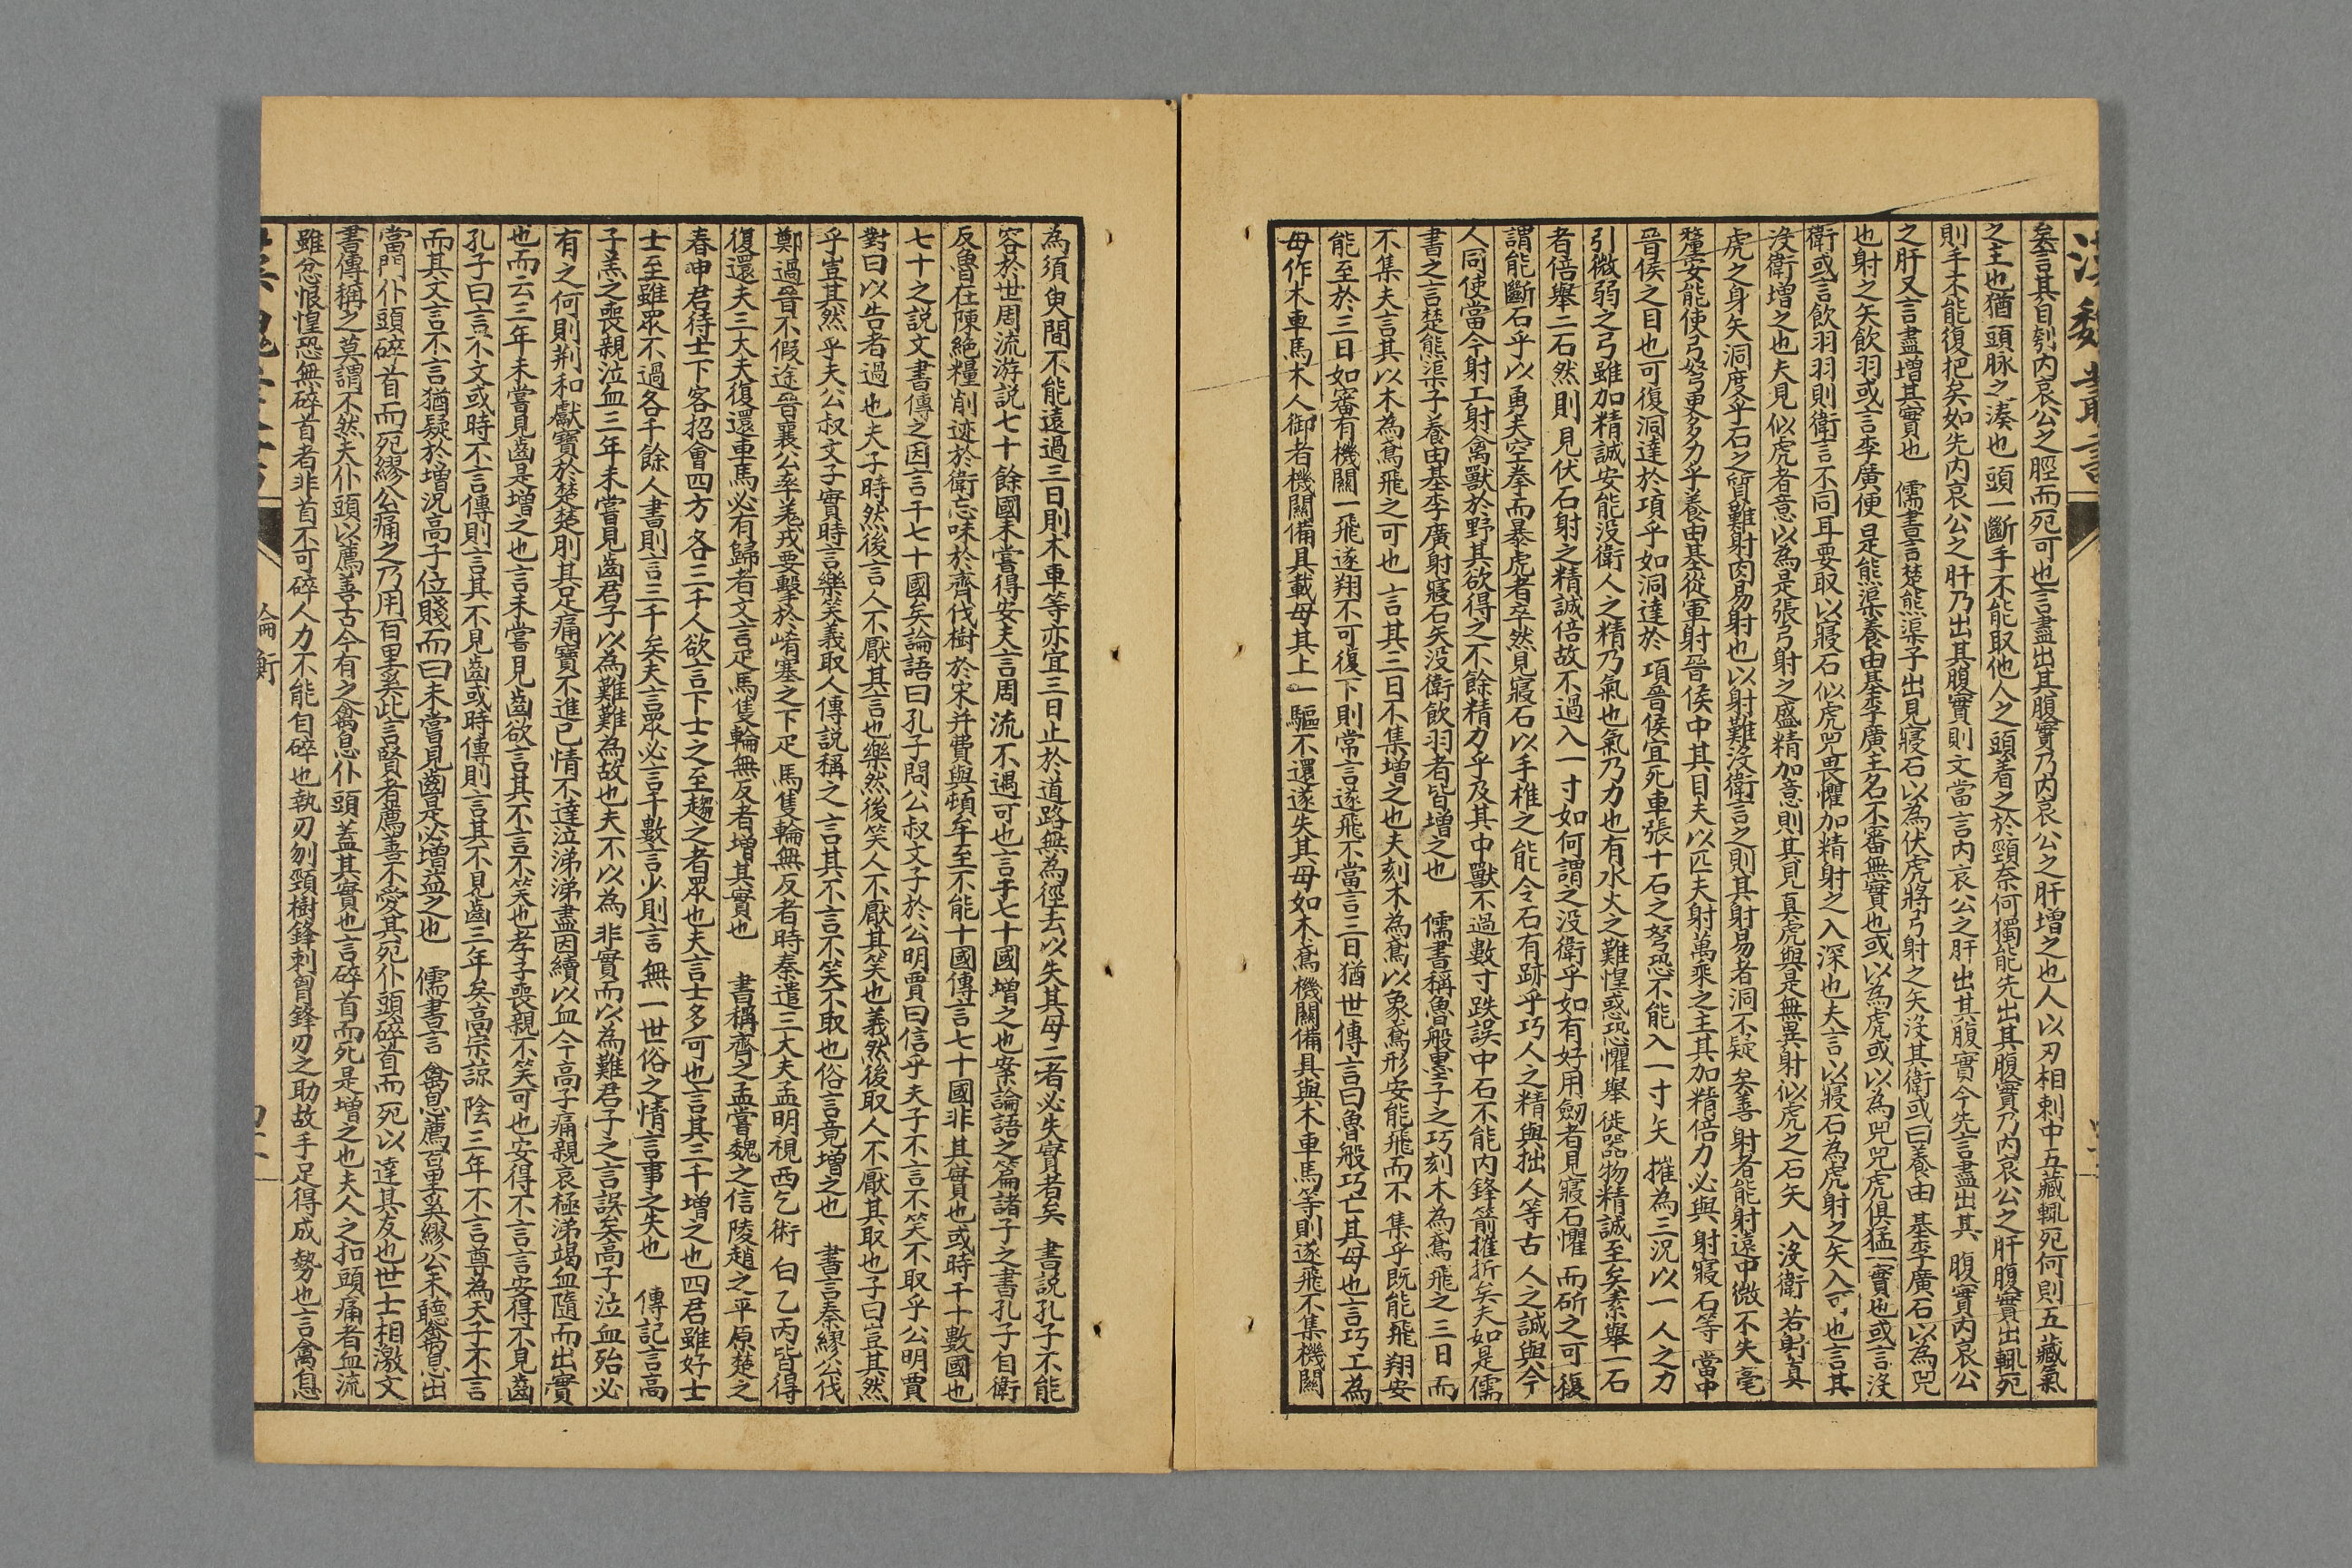 漢魏叢書
矣言其自刳内哀公之脛而死可也言盡出其腹實乃内哀公之肝增之也人以刃相刺中五藏輒死何則五藏氣
之主也猶頭脉之湊也頭一斷手不能取他人之頭着之於頸奈何獨能先出其腹實乃内哀公之肝腹實出輒死
則手不能復把矣如先内哀公之肝乃出其腹實則文當言内哀公之肝出其腹實今先言盡出其腹實内哀公
之肝又言盡增其實也　儒書言楚熊渠子出見寢石以為伏虎將弓射之矢沒其衛或曰養由基李廣石以為兕
也射之矢飲羽或言李廣便是熊渠養由基李廣主名不審無實也或以為虎或以為兕兕虎俱猛一實也或言沒
衛或言飲羽羽則衛言不同耳要取以寢石似虎兕畏懼加精射之入深也夫言以寢石為虎射之矢入可也言其
沒衛增之也夫見似虎者意以為是張弓射之盛精加意則其見真虎與是無異射似虎之石矢入沒衛若射真
虎之身矢洞度乎石之質難射肉易射也以射難沒衛言之則其射易者洞不疑矣善射者能射遠中微不失毫
釐安能使弓弩更多力乎養由基從軍射晉侯中其目夫以匹夫射萬乘之主其加精倍力必與射寢石等當中
晉侯之目也可復洞達於項乎如洞達於項晉侯宜死車張十石之弩恐不能入一寸矢摧為三況以一人之力
引微弱之弓雖加精誠安能沒衛人之精乃氣也氣乃力也有水火之難惶惑恐懼舉徙器物精誠至矣素舉一石
者倍舉二石然則見伏石射之精誠倍故不過入一寸如何謂之沒衛乎如有好用劒者見寢石懼而斫之可復
謂能斷石乎以勇夫空拳而暴虎者卒然見寢石以手椎之能令石有跡乎巧人之精與拙人等古人之誠與今
人同使當今射工射禽獸於野其欲得之不餘精力乎及其中獸不過數寸跌誤中石不能内鋒箭摧折矣夫如是儒
書之言楚熊渠子養由基李廣射寢石矢沒衛飲羽者皆增之也　儒書稱魯般墨子之巧刻木為鳶飛之三日而
不集夫言其以木為鳶飛之可也言其三日不集增之也夫刻木為鳶以象鳶形安能飛而不集乎既能飛翔安
能至於三日如審有機關一飛遂翔不可復下則常言遂飛不當言三日猶世傳言曰魯般巧亡其母也言巧工為
母作木車馬木人御者機關備具載母其上一驅不還遂失其母如木鳶機關備具與木車馬等則遂飛不集機關
為須臾間不能遠過三日則木車等亦宜三日止於道路無為徑去以失其母二者必失實者矣　書説孔子不能
容於世周流游説七十餘國未嘗得安夫言周流不遇可也言干七十國增之也案論語之篇諸子之書孔子自衛
反魯在陳絶糧削迹於衛忘味於齊伐樹於宋并費與頓牟至不能十國傳言七十國非其實也或時干十數國也
七十之説文書傳之因言干七十國矣論語曰孔子問公叔文子於公明賈曰信乎夫子不言不笑不取乎公明賈
對曰以告者過也夫子時然後言人不厭其言也樂然後笑人不厭其笑也義然後取人不厭其取也子曰豈其然
乎豈其然乎夫公叔文子實時言樂笑義取人傳説稱之言其不言不笑不取也俗言竟增之也　書言秦繆公伐
鄭過晉不假途晉襄公率羌戎要擊於崤塞之下疋馬隻輪無反者時秦遣三大夫孟明視西乞術白乙丙皆得
復還夫三大夫復還車馬必有歸者文言疋馬隻輪無反者增其實也　書稱齊之孟嘗魏之信陵趙之平原楚之
春申君待士下客招會四方各三千人欲言下士之至趨之者眾也夫言士多可也言其三千增之也四君雖好士
士至雖眾不過各千餘人書則言三千矣夫言眾必言千數言少則言無一世俗之情言事之失也　傳記言高
子羔之喪親泣血三年未嘗見齒君子以為難難為故也夫不以為非實而以為難君子之言誤矣高子泣血殆必
有之何則荆和獻寶於楚楚刖其足痛寶不進已情不達泣涕涕盡因續以血今高子痛親哀極涕竭血隨而出實
也而云三年未嘗見齒是增之也言未嘗見齒欲言其不言不笑也孝子喪親不笑可也安得不言言安得不見齒
孔子曰言不文或時不言傳則言其不見齒或時傳則言其不見齒三年矣高宗諒陰三年不言尊為天子不言
而其文言不言猶疑於增況高子位賤而曰未嘗見齒是必增益之也　儒書言禽息薦百里奚繆公未聽禽息出
當門仆頭碎首而死繆公痛之乃用百里奚此言賢者薦善不愛其死仆頭碎首而死以達其友也世士相激文
書傳稱之莫謂不然夫仆頭以薦善古今有之禽息仆頭蓋其實也言碎首而死是增之也夫人之扣頭痛者血流
雖忿恨惶恐無碎首者非首不可碎人力不能自碎也執刃刎頸樹鋒刺胷鋒刃之助故手足得成勢也言禽息
論衡